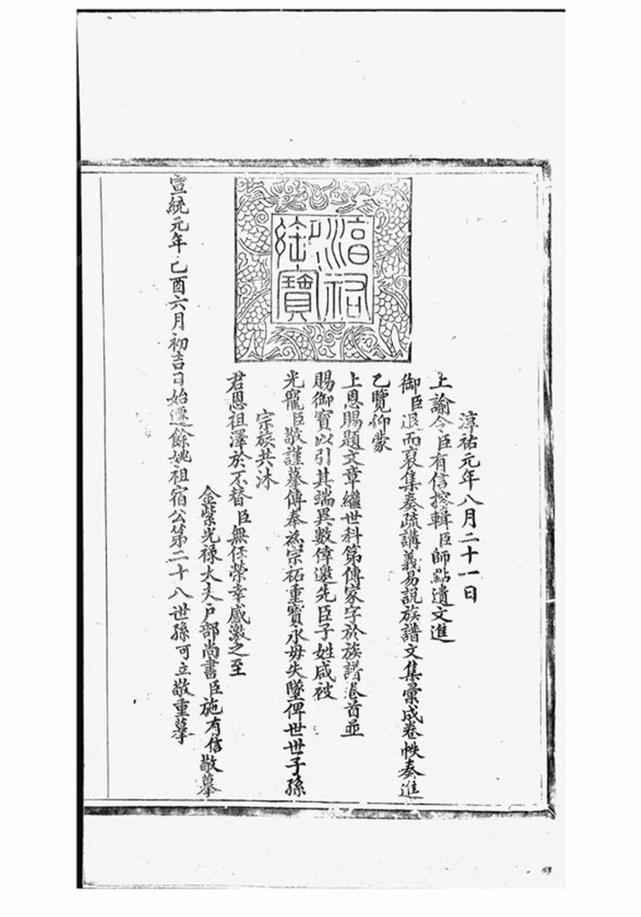 淳祐御寶
淳祐元年八月二十一日
上諭令臣有信搜輯臣師點遺文進
御臣退而裒集奏疏講義易說族譜文集彙成卷帙奏進
乙覽仰蒙
上恩賜題文章繼世科第傳家字於族譜卷首並
賜御寶以引其端異數倖邀先臣子姓咸被
光寵臣敬謹摹傳奉為宗祏重寶永毋失墜俾世世子孫
宗族共沐
君恩祖澤於不替臣無任榮幸感激之至
金紫光祿大夫戶部尚書臣施有信敬摹
宣統元年己酉六月初吉日始遷餘姚祖宿公第二十八世孫可立敬重摹